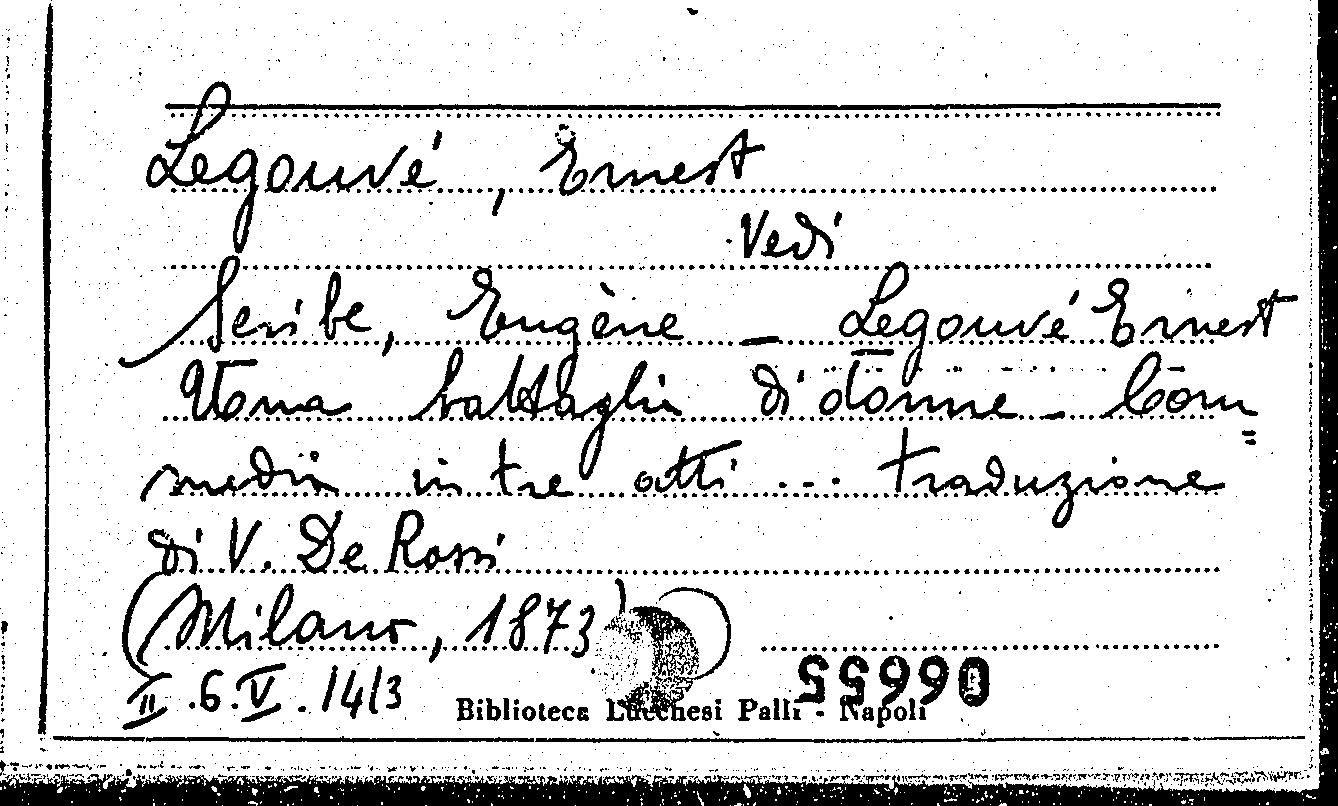 Legouvé, Ernest
Vedi
Scribe, Eugène - Legouvé Ernest
Una battaglia di donne - Com=
media in tre atti ... traduzione
di V. De Rossi
(Milano, 1873)
II.6.V.14/3
06655
Biblioteca Lucchesi Palli - Napoli